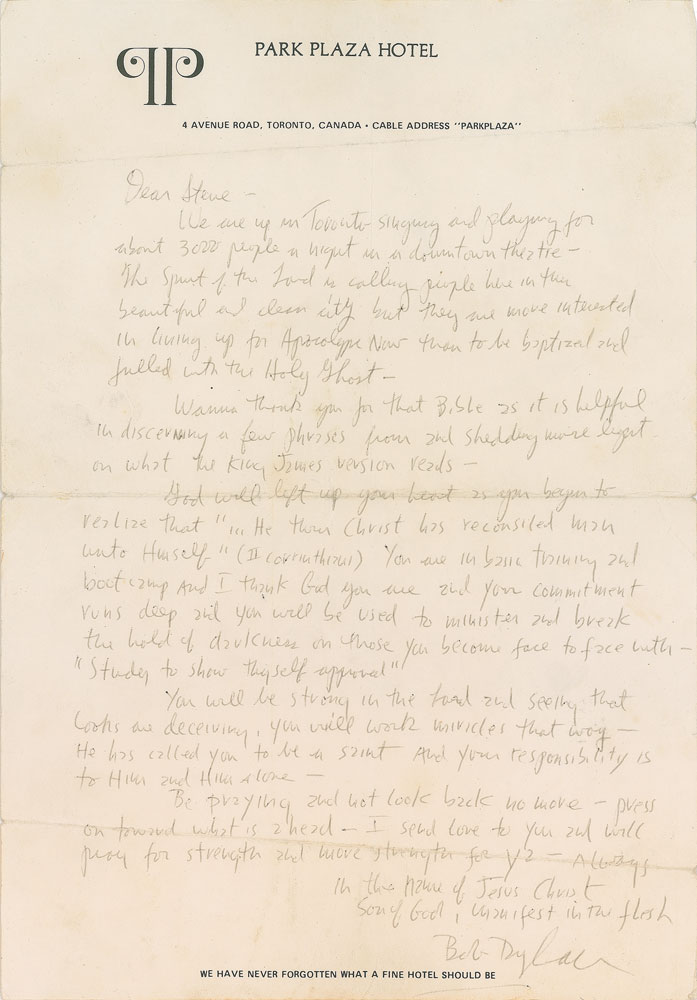 PARK PLAZA HOTEL
4 AVENUE ROAD, TORONTO, CANADA • CABLE ADDRESS "PARKPLAZA"
Dear Steve –
We are up in Toronto singing and playing for
about 3000 people a night in a downtown theatre –
The Spirit of the Lord is calling people here in this
beautiful and clean city but they are more interested
in lining up for Apocolypse Now than to be baptized and
filled with the Holy Ghost –
Wanna thank you for that Bible as it is helpful
in discerning a few phrases from and shedding more light
on what the King James version reads –
God will lift up your heart as you begin to
realize that "... He thru Christ has reconsiled man
unto Himself" (II corinthians) You are in basic training and
bootcamp And I thank God you are and your commitment
runs deep and you will be used to minister and break
the hold of darkness on those you become face to face with –
"Study to show thyself approval"
You will be strong in the Lord and seeing that
looks are deceiving, you will work miricles that way –
He has called you to be a saint And your responsibility is
to Him and Him alone –
Be praying and not look back no more – press
on toward what is ahead – I send love to you and will
pray for strength and more strength for ya – Always
in the Name of Jesus Christ
Son of God, manifest in the flesh
Bob Dylan
WE HAVE NEVER FORGOTTEN WHAT A FINE HOTEL SHOULD BE